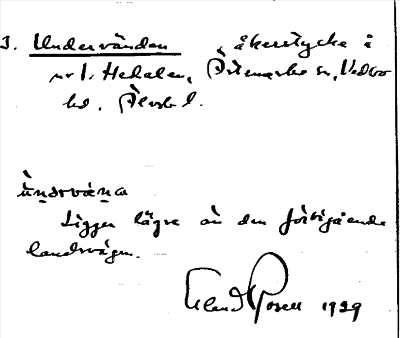 3. Undervändan, åkerstycke i
nr 1. Hedalen, Östmarks sn, Vedbo
hd. Älvsb l.
ùndərvæ̀na
Ligger lägre än den förbigående
landsvägen.
Erland Rosell 1929